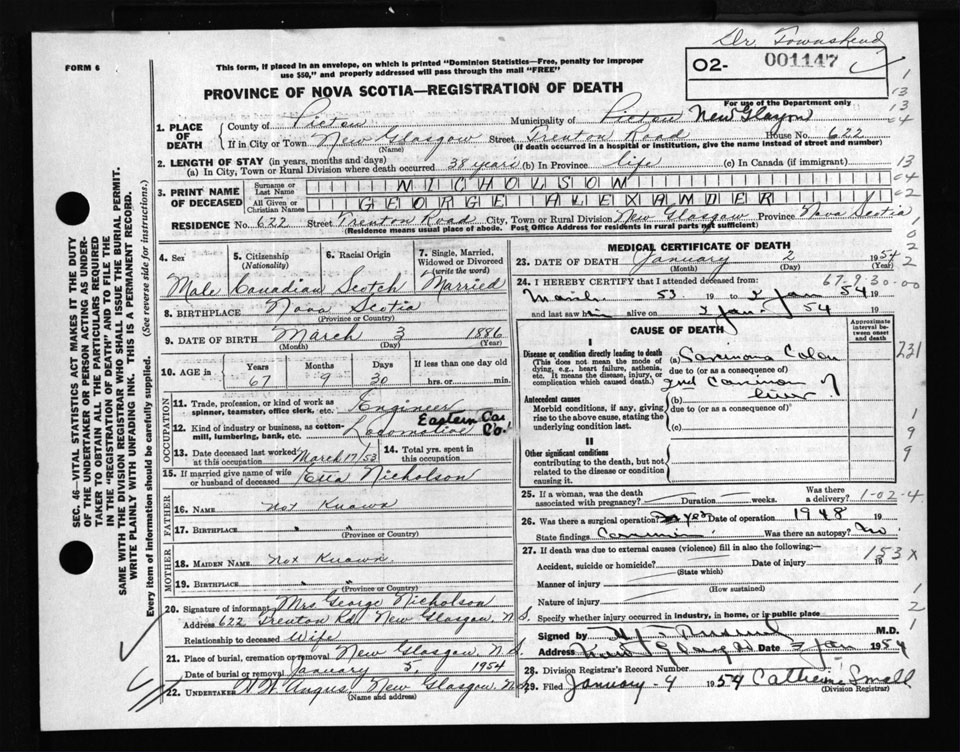 Dr. Townshend
FORM 6
This form, if placed in an envelope, on which is printed "Dominion Statistics—Free, penalty for improper
use $50," and properly addressed will pass through the mail "FREE"
O2- 001147
For use of the Department only
PROVINCE OF NOVA SCOTIA—REGISTRATION OF DEATH
1. PLACE OF DEATH
County of Pictou Municipality of Pictou New Glasgow
If in City or Town New Glasgow Street Trenton Road House No. 622
(Name) (If death occurred in a hospital or institution, give the name instead of street and number)
2. LENGTH OF STAY (in years, months and days)
(a) In City, Town or Rural Division where death occurred 38 years (b) In Province life (c) In Canada (if immigrant)
3. PRINT NAME OF DECEASED
Surname or Last Name NICHOLSON
All Given or Christian Names GEORGE ALEXANDER
RESIDENCE No. 622 Street Trenton Road City, Town or Rural Division New Glasgow Province Nova Scotia
(Residence means usual place of abode. Post Office Address for residents in rural parts not sufficient)
4. Sex
Male
5. Citizenship
(Nationality)
Canadian
6. Racial Origin
Scotch
7. Single, Married, Widowed or Divorced
(write the word)
Married
8. BIRTHPLACE Nova Scotia
(Province or Country)
9. DATE OF BIRTH March 3 1886
(Month) (Day) (Year)
10. AGE in Years Months Days If less than one day
67 9 30 hrs. or min.
OCCUPATION
11. Trade, profession, or kind of work as
spinner, teamster, office clerk, etc. Engineer
12. Kind of industry or business, as cotton-
mill, lumbering, bank, etc. Locomotive Eastern Car Co.
13. Date deceased last worked at this occupation March 17/53
14. Total yrs. spent in this occupation
15. If married give name of wife
or husband of deceased Etta Nicholson
FATHER
16. NAME Not Known
17. BIRTHPLACE " "
(Province or Country)
MOTHER
18. MAIDEN NAME Not Known
19. BIRTHPLACE " "
(Province or Country)
20. Signature of informant Mrs George Nicholson
Address 622 Trenton Rd. New Glasgow, N.S.
Relationship to deceased Wife
21. Place of burial, cremation or removal New Glasgow, N.S.
Date of burial or removal January 5, 1954
22. UNDERTAKER H.W. Angus, New Glasgow, N.S.
(Name and address)
MEDICAL CERTIFICATE OF DEATH
23. DATE OF DEATH January 2 1954
(Month) (Day) (Year)
67-9-30-00
24. I HEREBY CERTIFY that I attended deceased from
March 53 19 to 2 Jan 54 19
and last saw him alive on 2 Jan. 54 19
CAUSE OF DEATH
Approximate interval between onset and death
I
Disease or condition directly leading to death
(This does not mean the mode of dying, e.g., heart failure, asthenia, etc. It means the disease, injury, or complication which caused death.)
(a) Carcinoma Colon
due to (or as a consequence of)
Antecedent causes
Morbid conditions, if any, giving rise to the above cause, stating the underlying condition last.
(b) 2nd Carcinoma of liver
due to (or as a consequence of)
(c)
II
Other significant conditions
contributing to the death, but not related to the disease or condition causing it.
25. If a woman, was the death associated with pregnancy? Duration weeks. Was there a delivery?
1-02-4
26. Was there a surgical operation? yes Date of operation 1948 19
State findings Was there an autopsy? No
27. If death was due to external causes (violence) fill in also the following:—
153 X
Accident, suicide or homicide? Date of injury 19
(State which)
Manner of injury
(How sustained)
Nature of injury
Specify whether injury occurred in industry, in home, or in public place
Signed by M.D.
Address Date 3 Jan 1954
28. Division Registrar's Record Number
29. Filed January-4 1954 Catherine Small
(Division Registrar)
SEC. 46—VITAL STATISTICS ACT MAKES IT THE DUTY
OF THE UNDERTAKER OR PERSON ACTING AS UNDER-
TAKER TO OBTAIN ALL THE PARTICULARS REQUIRED
IN THE "REGISTRATION OF DEATH" AND TO FILE THE
SAME WITH THE DIVISION REGISTRAR WHO SHALL ISSUE THE BURIAL PERMIT.
WRITE PLAINLY WITH UNFADING INK. THIS IS A PERMANENT RECORD.
Every item of information should be carefully supplied. (See reverse side for instructions.)
1
13
13
04
13
04
02
1
0
2
2
231
1
9
9
1
2
1